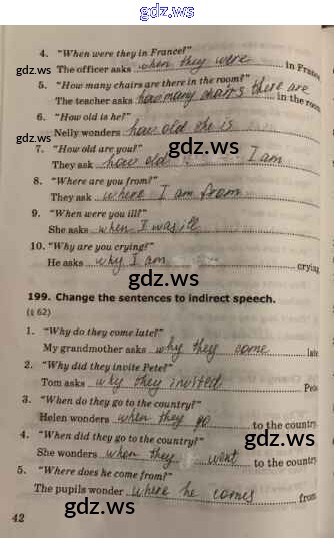 gdz.ws
4. "When were they in France?"
The officer asks when they were in France
5. "How many chairs are there in the room?"
The teacher asks how many chairs there are in the room
6. "How old is he?"
Nelly wonders how old she is
7. "How old are you?"
They ask how old I am
8. "Where are you from?"
They ask where I am from
9. "When were you ill?"
She asks when I was ill
10. "Why are you crying?"
He asks why I am crying
gdz.ws
199. Change the sentences to indirect speech.
(§ 62)
1. "Why do they come late?"
My grandmother asks why they come late
2. "Why did they invite Pete?"
Tom asks why they invited Pete
3. "When do they go to the country?"
Helen wonders when they go to the country
4. "When did they go to the country?"
She wonders when they went to the country
5. "Where does he come from?"
The pupils wonder where he comes from
42
gdz.ws
gdz.ws
gdz.ws
gdz.ws
gdz.ws
gdz.ws
gdz.ws